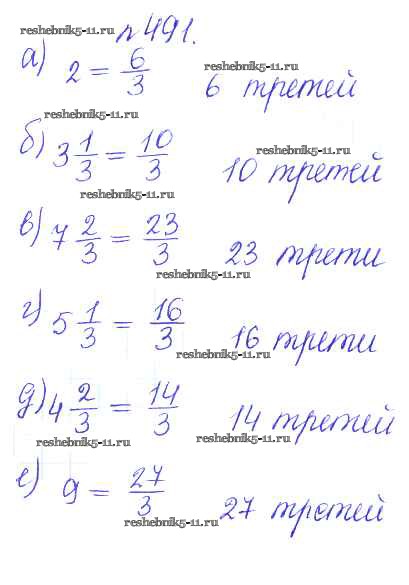 reshebnik5-11.ru №491.
а) 2 = 6/3 reshebnik5-11.ru 6 третей
reshebnik5-11.ru
б) 3 1/3 = 10/3 reshebnik5-11.ru 10 третей
reshebnik5-11.ru
в) 7 2/3 = 23/3 23 трети
reshebnik5-11.ru
г) 5 1/3 = 16/3 16 трети
reshebnik5-11.ru
д) 4 2/3 = 14/3 14 третей
reshebnik5-11.ru reshebnik5-11.ru
е) 9 = 27/3 27 третей
reshebnik5-11.ru